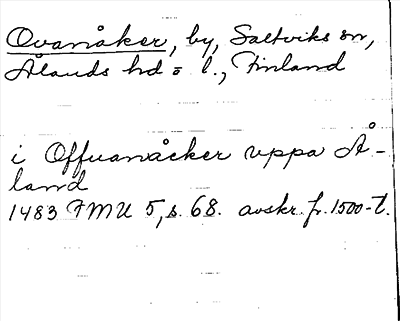 Ovanåker, by, Saltviks sn,
Ålands hd o l., Finland
i Offuanåcker uppa Å-
land
1483 FMU 5, s. 68. avskr. fr. 1500-t.